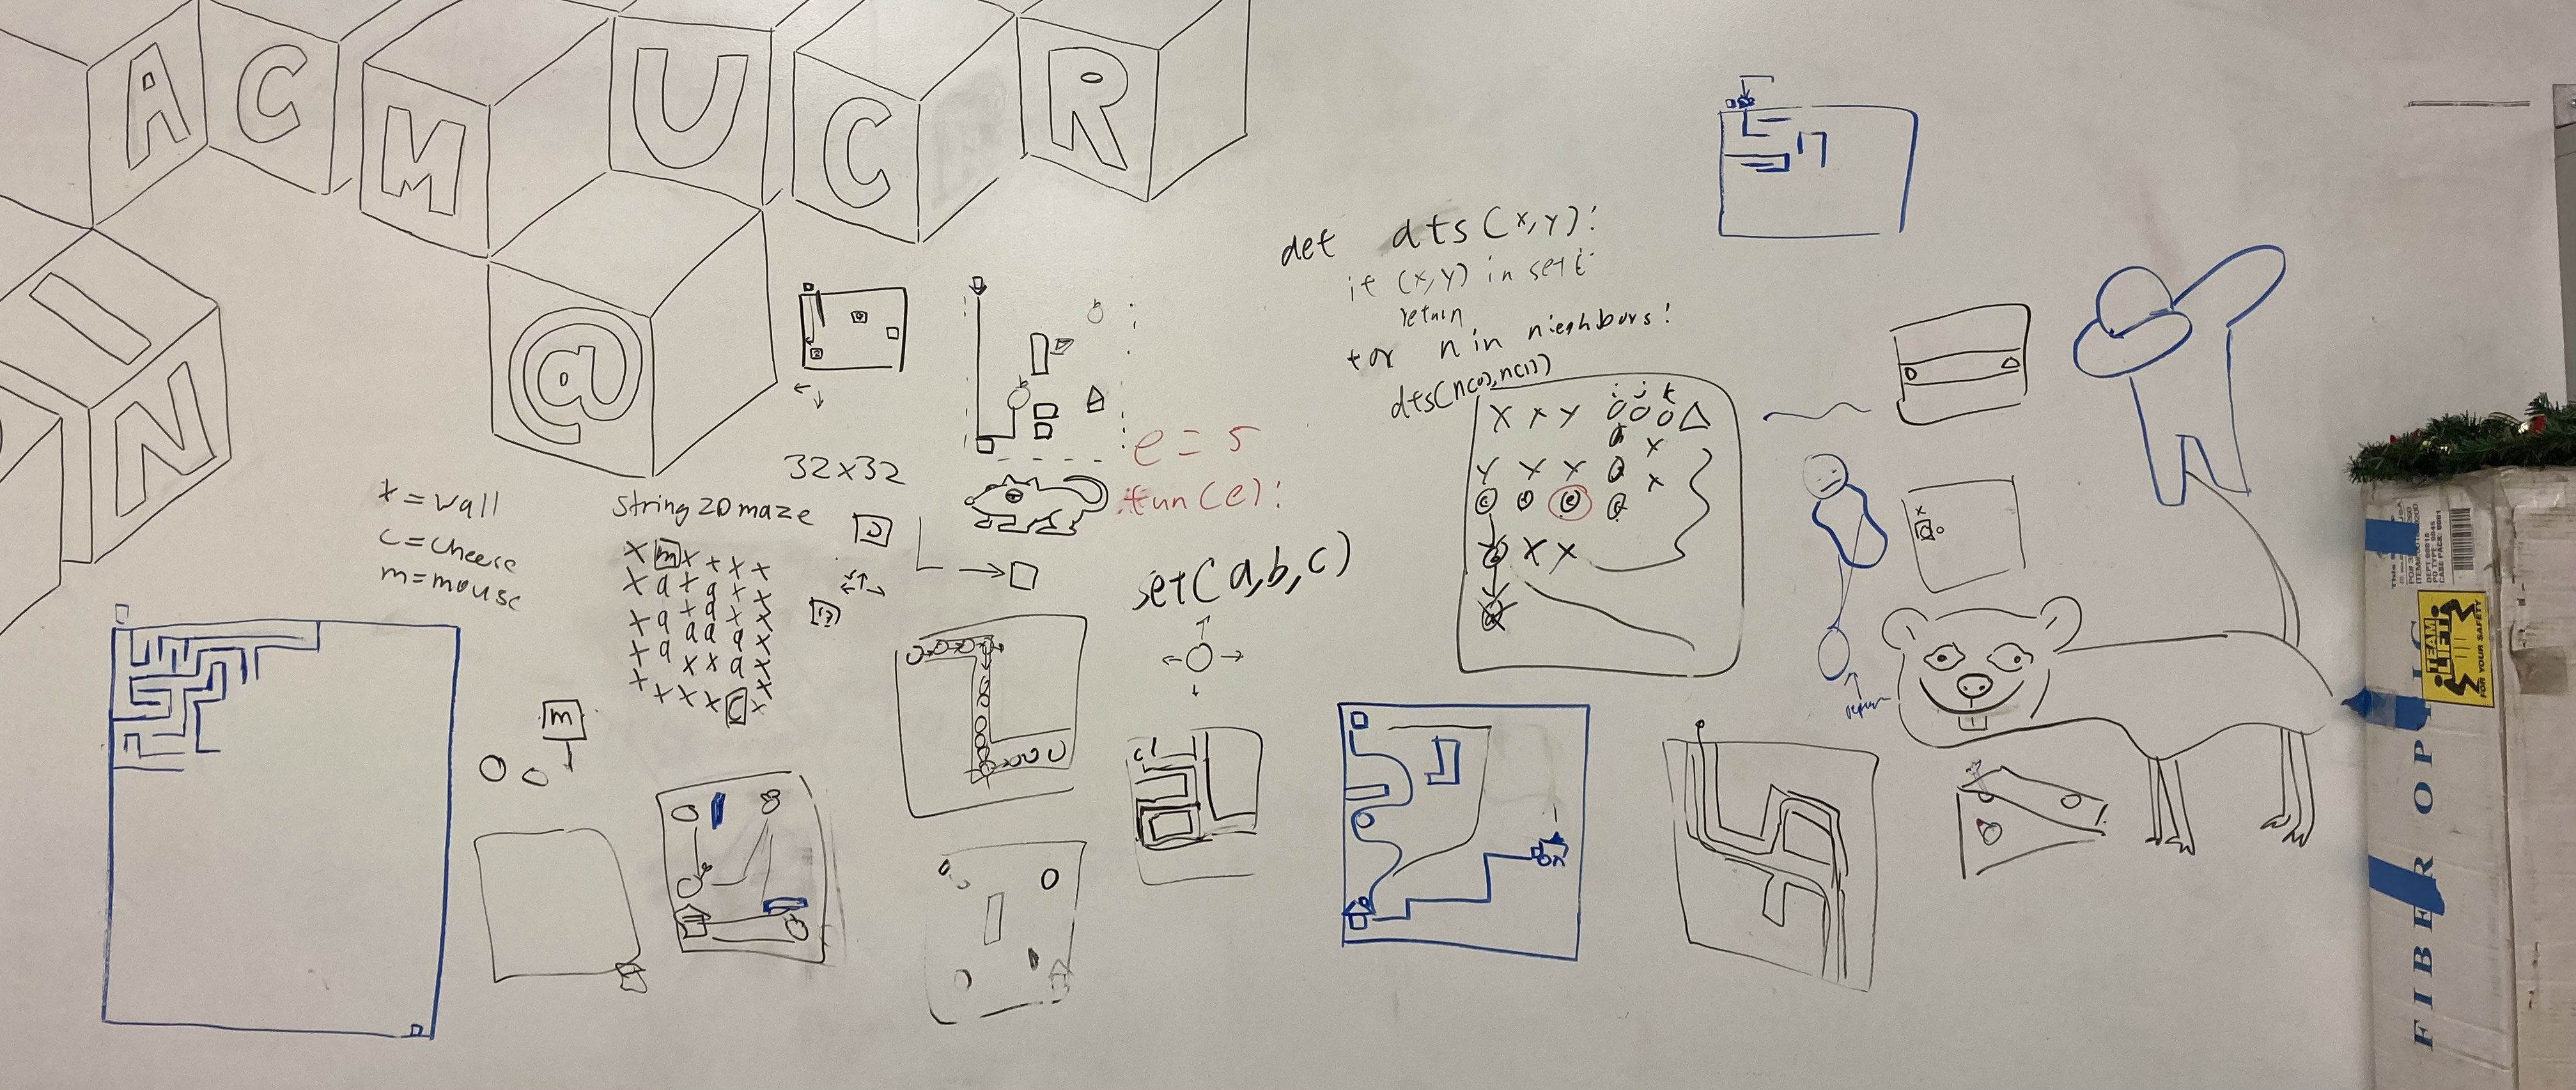 A C M U C R
@
I N
def dfs(x,y):
if (x,y) in set:
return
for n in nieghbors:
dfs(n(0),n(1))
i j k
X X Y O O O
Y X X
X X
e = 5
fun(e):
32x32
String 2D maze
x = wall
c = cheese
m = mouse
X m X X X X
X a X a X X
X a X a X X
X a a a a X
X a X X a X
X X X X C X
m
set(a,b,c)
return
TEAM
LIFT
FOR YOUR SAFETY
FIBER OPTIC